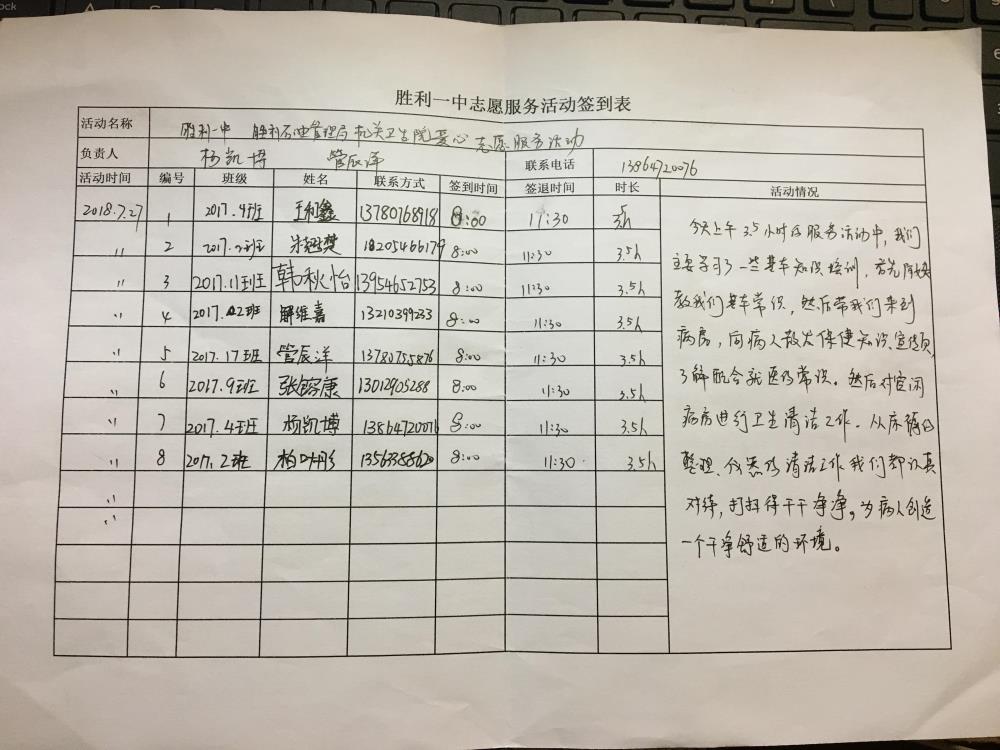 胜利一中志愿服务活动签到表
活动名称 胜利一中 胜利石油管理局机关卫生院爱心志愿服务活动
负责人 杨凯博 管辰洋 联系电话 13864720076
活动时间 编号 班级 姓名 联系方式 签到时间 签退时间 时长 活动情况
2018.7.27 1 2017.4班 王利鑫 13780768918 8:00 11:30 3.5h
〃 2 2017.2班 18205466179 8:00 11:30 3.5h
〃 3 2017.11班 韩秋怡 13954652753 8:00 11:30 3.5h
〃 4 2017.22班 解维嘉 13210399233 8:00 11:30 3.5h
〃 5 2017.17班 管辰洋 13780755876 8:00 11:30 3.5h
〃 6 2017.9班 张皓康 13012905288 8:00 11:30 3.5h
〃 7 2017.4班 杨凯博 13864720076 8:00 11:30 3.5h
〃 8 2017.2班 柏叶彤 13563388620 8:00 11:30 3.5h
〃
〃
今天上午3.5小时的服务活动中，我们
主要学习了一些基本知识培训，首先
教我们基本常识，然后带我们来到
病房，向病人散发保健知识宣传页，
了解配合就医的常识。然后对空闲
病房进行卫生清洁工作。从床铺的
整理、仪器的清洁工作我们都认真
对待，打扫得干干净净。为病人创造
一个干净舒适的环境。